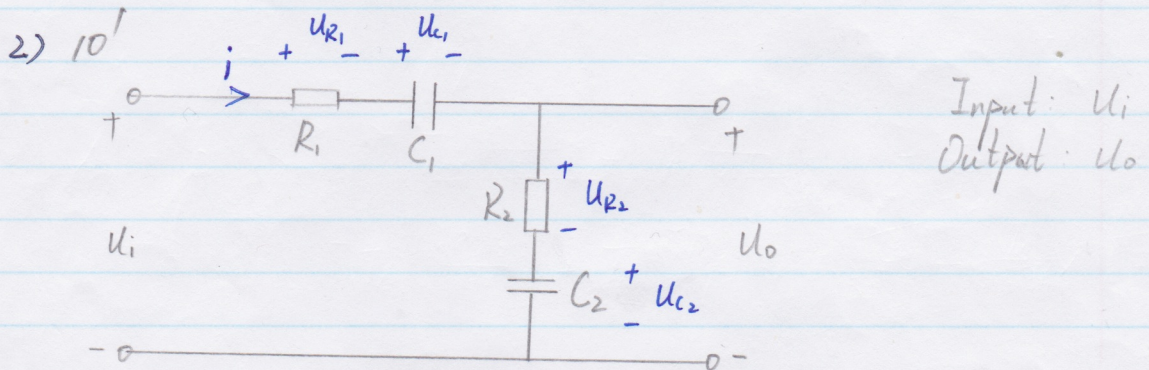 2) 10'
+ u_{R1} - + u_{c1} -
i
+ R_1 C_1 +
Input: u_i
Output: u_o
R_2 + u_{R2} -
u_i u_o
C_2 + u_{C2} -
- -